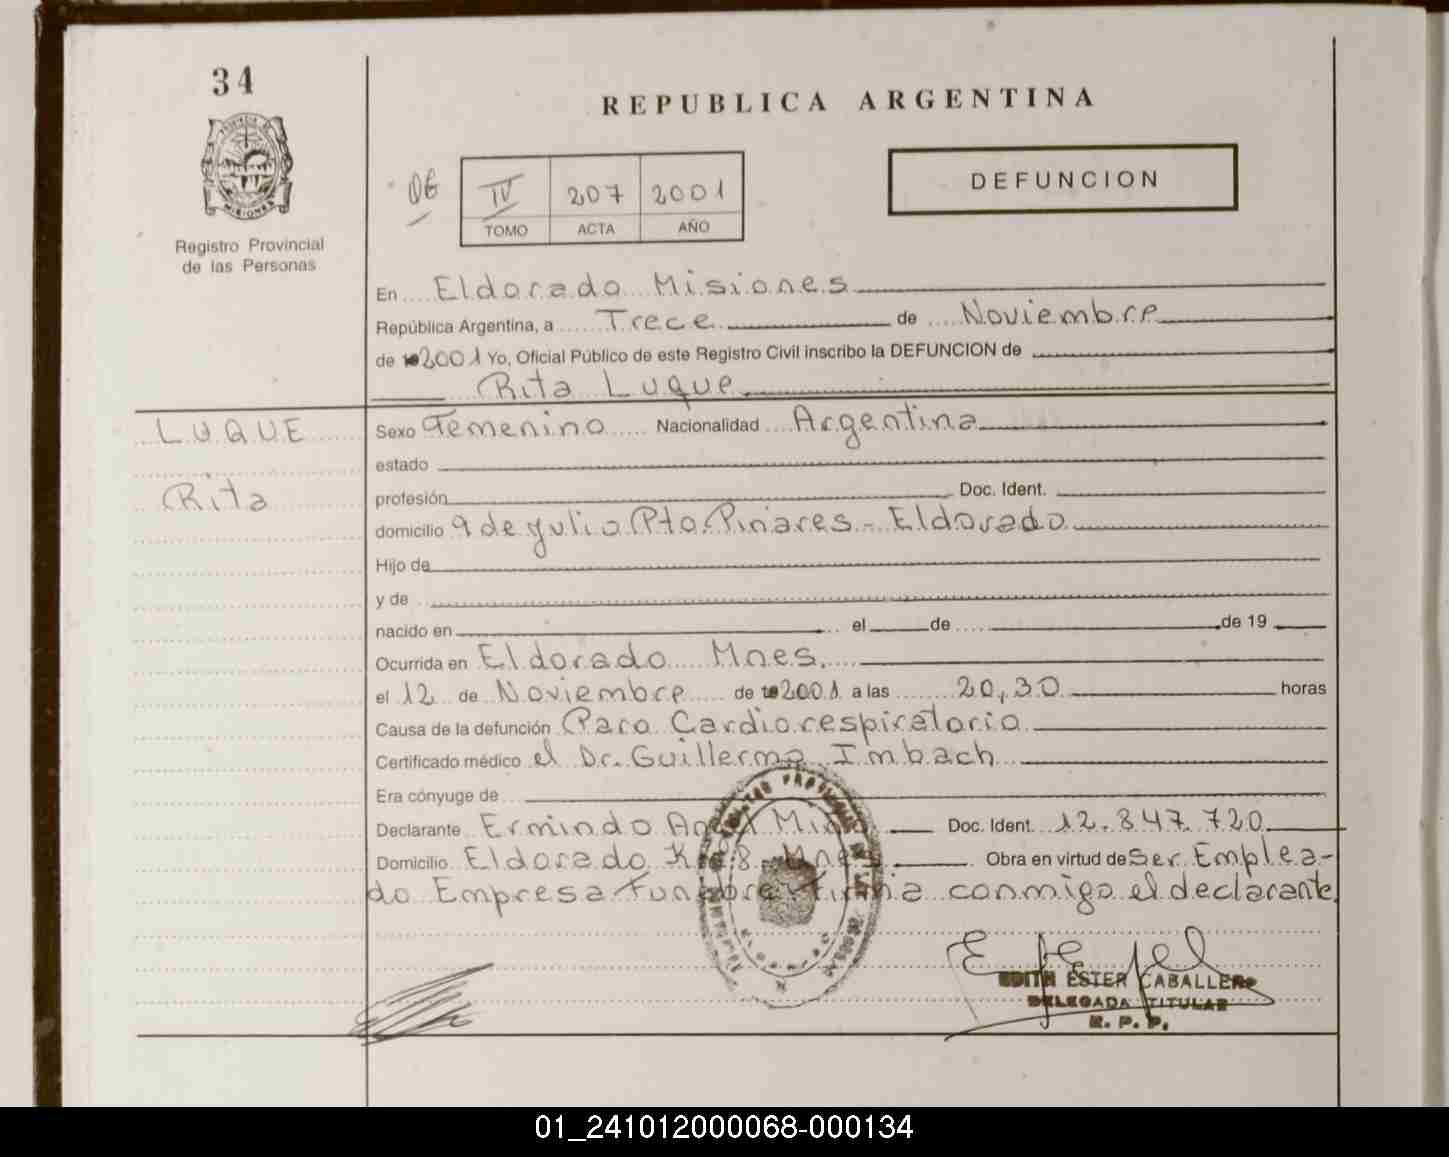 34
REPUBLICA ARGENTINA
PROVINCIA DE
MISIONES
Registro Provincial
de las Personas
06
IV 207 2001
TOMO ACTA AÑO
DEFUNCION
En Eldorado Misiones
República Argentina, a Trece de Noviembre
de 2001 Yo, Oficial Público de este Registro Civil inscribo la DEFUNCION de
Rita Luque
LUQUE
Rita
Sexo Femenino Nacionalidad Argentina
estado
profesión Doc. Ident.
domicilio 9 de Julio Pto. Pinares - Eldorado
Hijo de
y de
nacido en el de de 19
Ocurrida en Eldorado Mnes.
el 12 de Noviembre de 2001 a las 20,30 horas
Causa de la defunción Paro Cardiorespiratorio
Certificado médico el Dr. Guillermo Imbach
Era cónyuge de
Declarante Ermindo Doc. Ident. 12.847.720
Domicilio Eldorado Km 8 - Mnes Obra en virtud de Ser Emplea-
do Empresa Funebre Firma conmigo el declarante
EDITH ESTER CABALLERO
DELEGADA TITULAR
R. P. P.
01_241012000068-000134